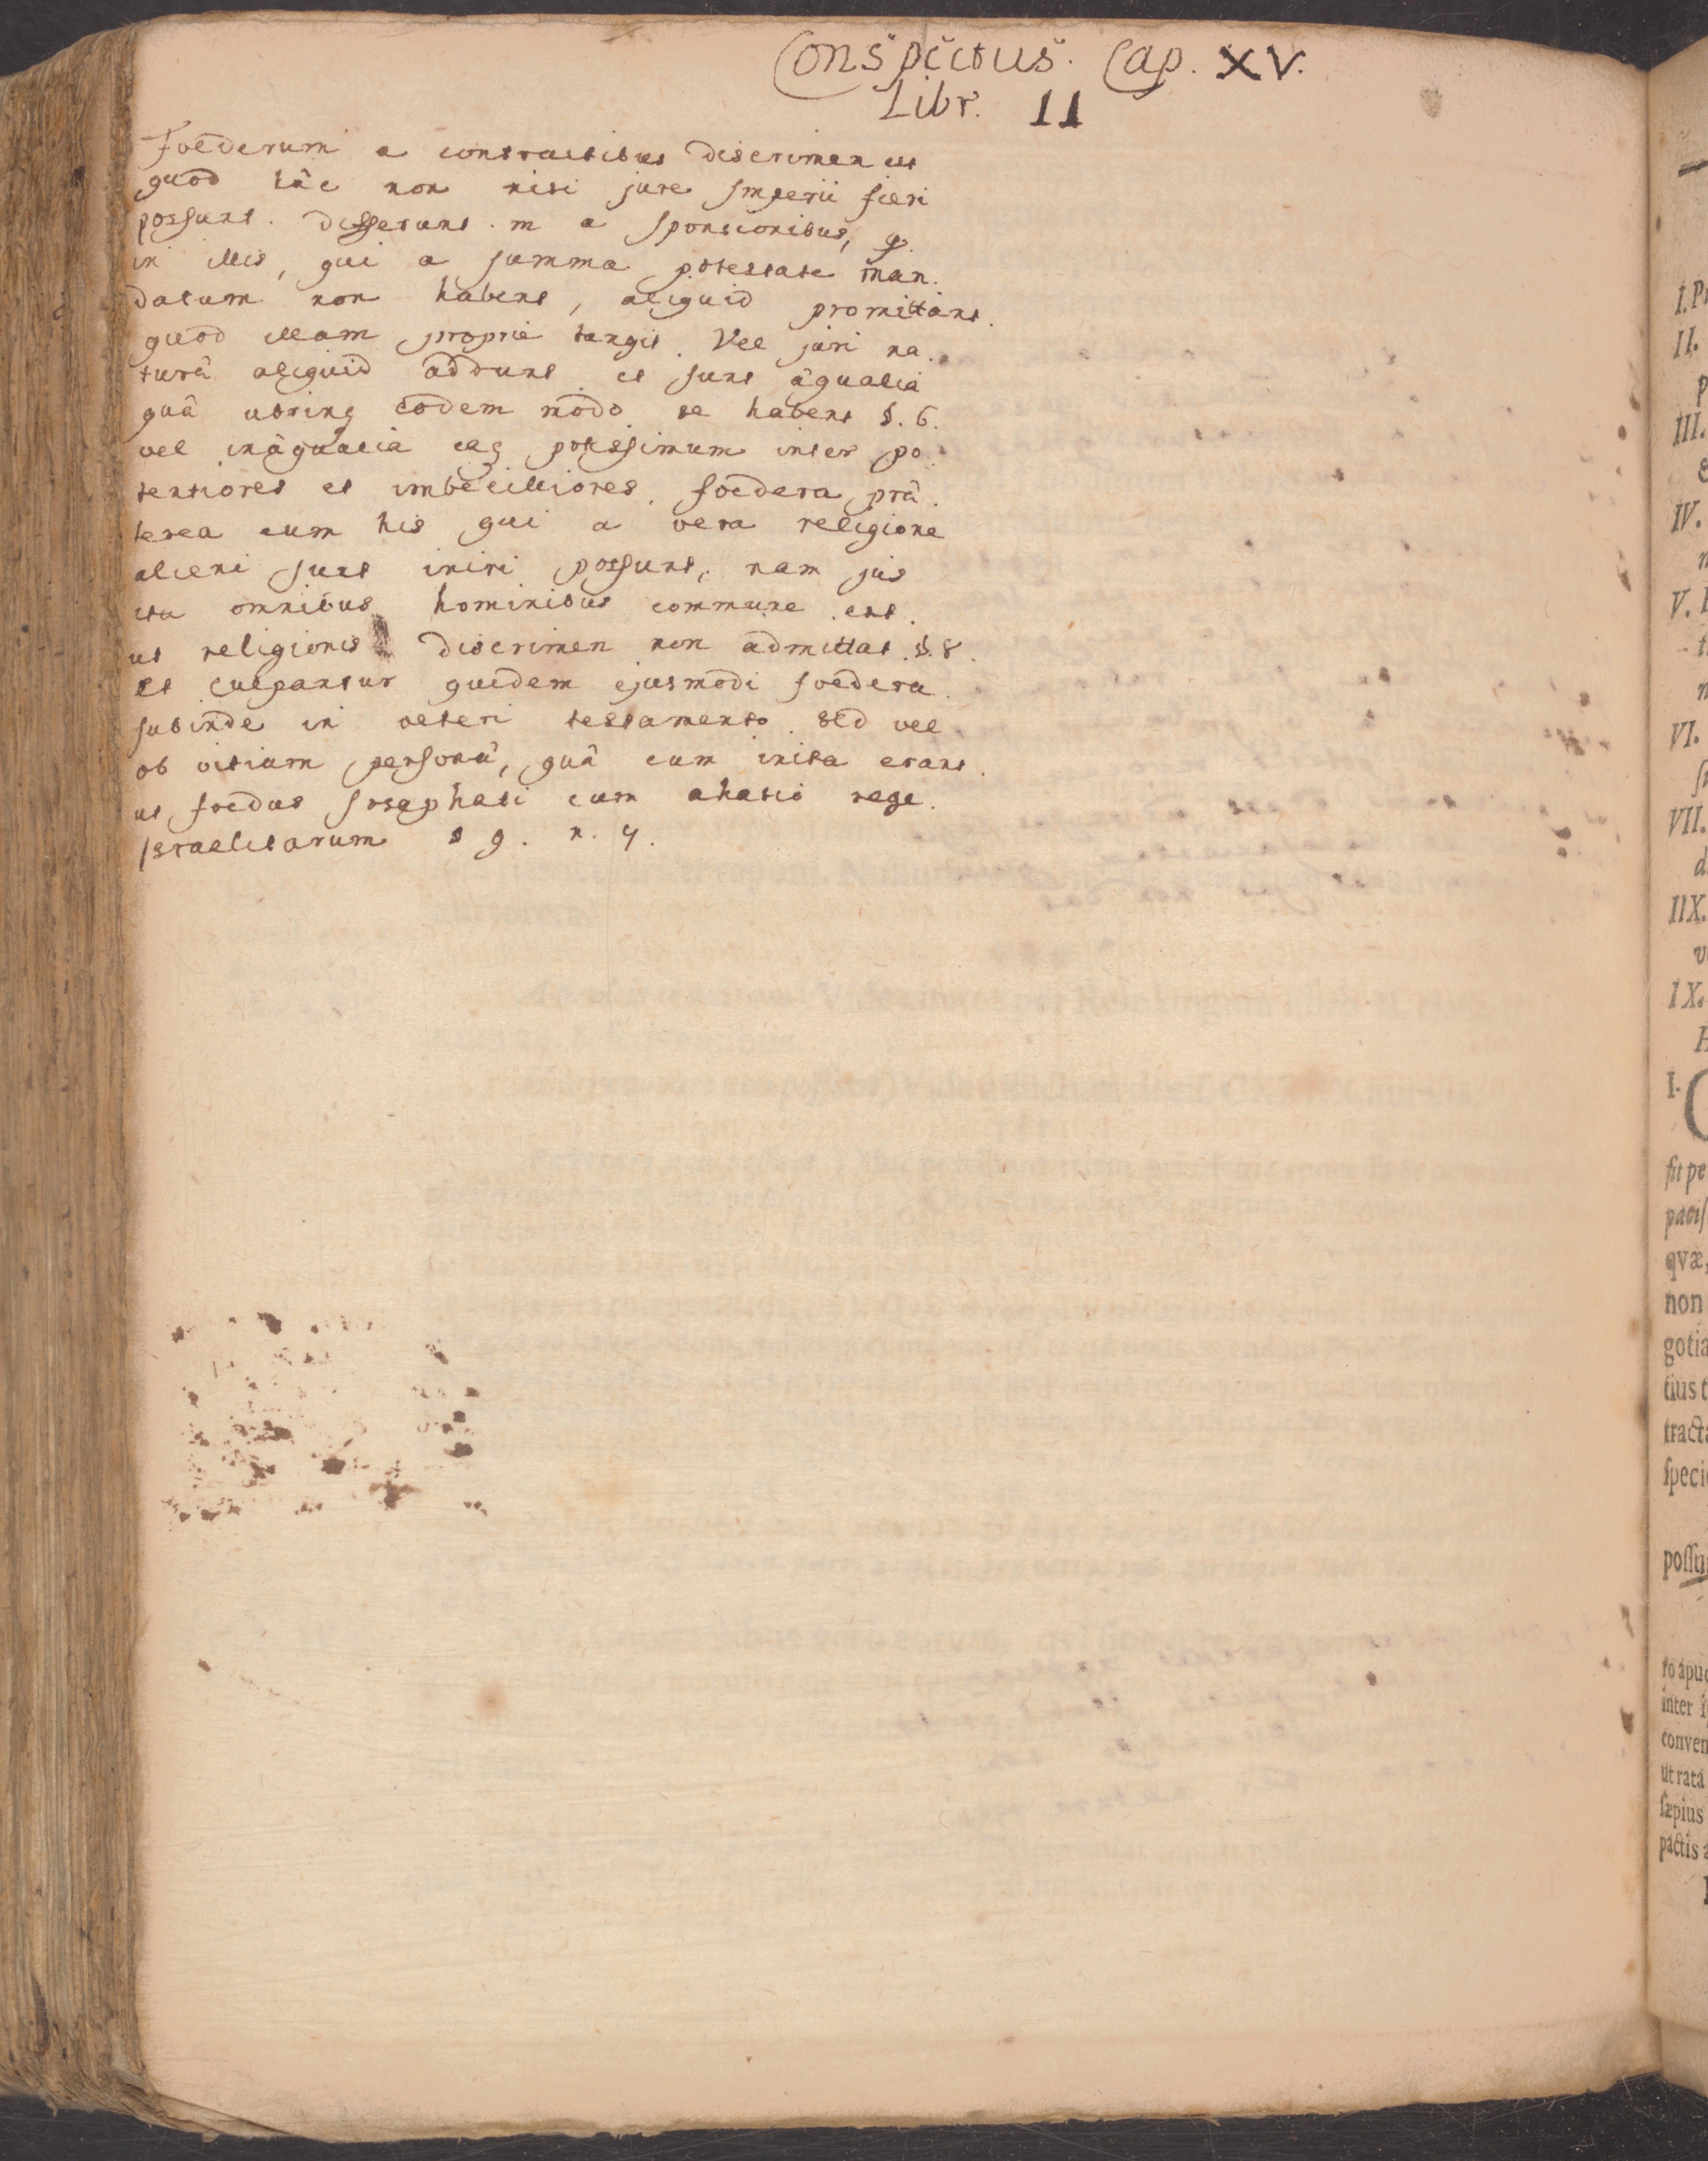 Conspectus. Cap. XV.
Libr. II
Foederum a contractibus discrimen est
quod hæc non nisi jure Imperii fieri
possunt. Differunt. m a sponsionibus, q.
in illis, qui a summa potestate man.
datum non habent, aliquid promittant.
quod illam proprie tangit. Vel juri na.
turæ aliquid addunt et sunt æqualia
quæ utrinq eodem modo se habent §. 6.
vel inæqualia eaq potissimum inter po.
tentiores et imbecilliores. foedera præ.
terea cum his qui a vera religione
alieni sunt iniri possunt, nam jus
ita omnibus hominibus commune est.
ut religionis discrimen non admittat §. 8.
Et culpantur quidem ejusmodi foedera.
subinde in veteri testamento sed vel
ob vitium personæ, quâ cum inita erant.
ut foedus Josaphati cum ahabio rege.
Israelitarum § 9. n. 4.
I. P
II.
p
III.
IV.
n
V.
t
n
VI.
VII.
d
IIX.
v
IX.
H
I.
fit pe
pacis
qvæ,
non
gotia
tius t
tract
speci
possu
ro apud
inter
conven
ut rata
sæpius
pactis a